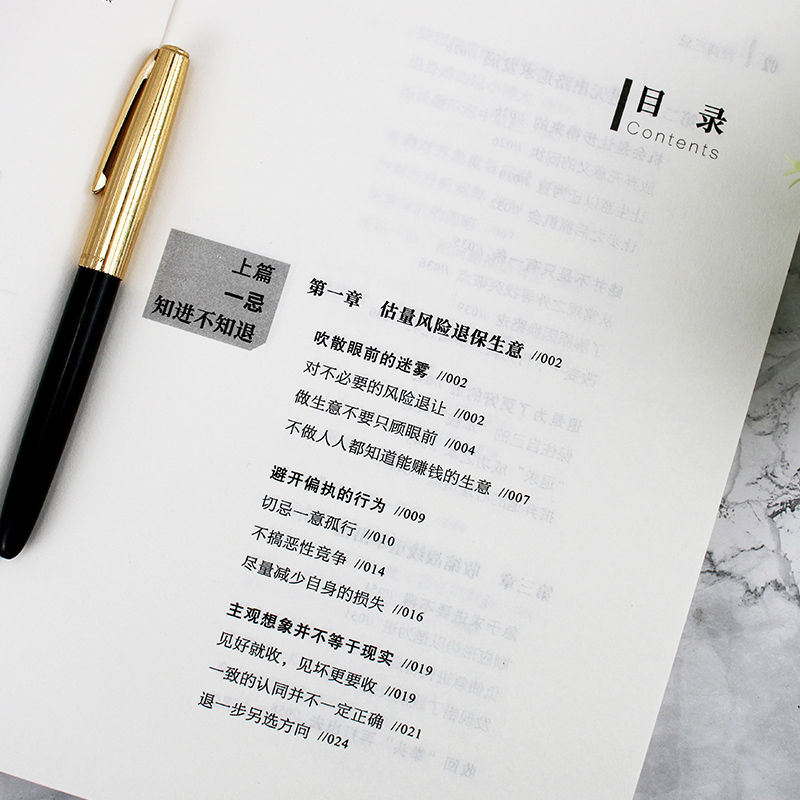 目 录
Contents
上篇
一忌
知进不知退
第一章 估量风险退保生意 //002
吹散眼前的迷雾 //002
对不必要的风险退让 //002
做生意不要只顾眼前 //004
不做人人都知道能赚钱的生意 //007
避开偏执的行为 //009
切忌一意孤行 //010
不搞恶性竞争 //014
尽量减少自身的损失 //016
主观想象并不等于现实 //019
见好就收，见坏更要收 //019
一致的认同并不一定正确 //021
退一步另选方向 //024